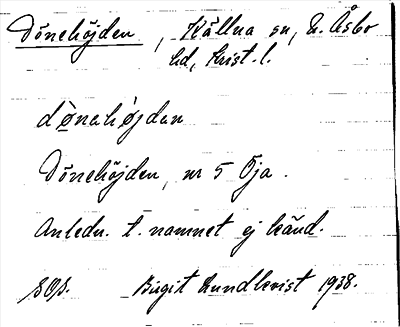 Dönehöjden, Källna sn, N. Åsbo
hd, Krist. l.
dønahøjdan
Dönehöjden, nr 5 Öja.
Anledn. t. namnet ej känd.
Birgit Lundkvist 1938.